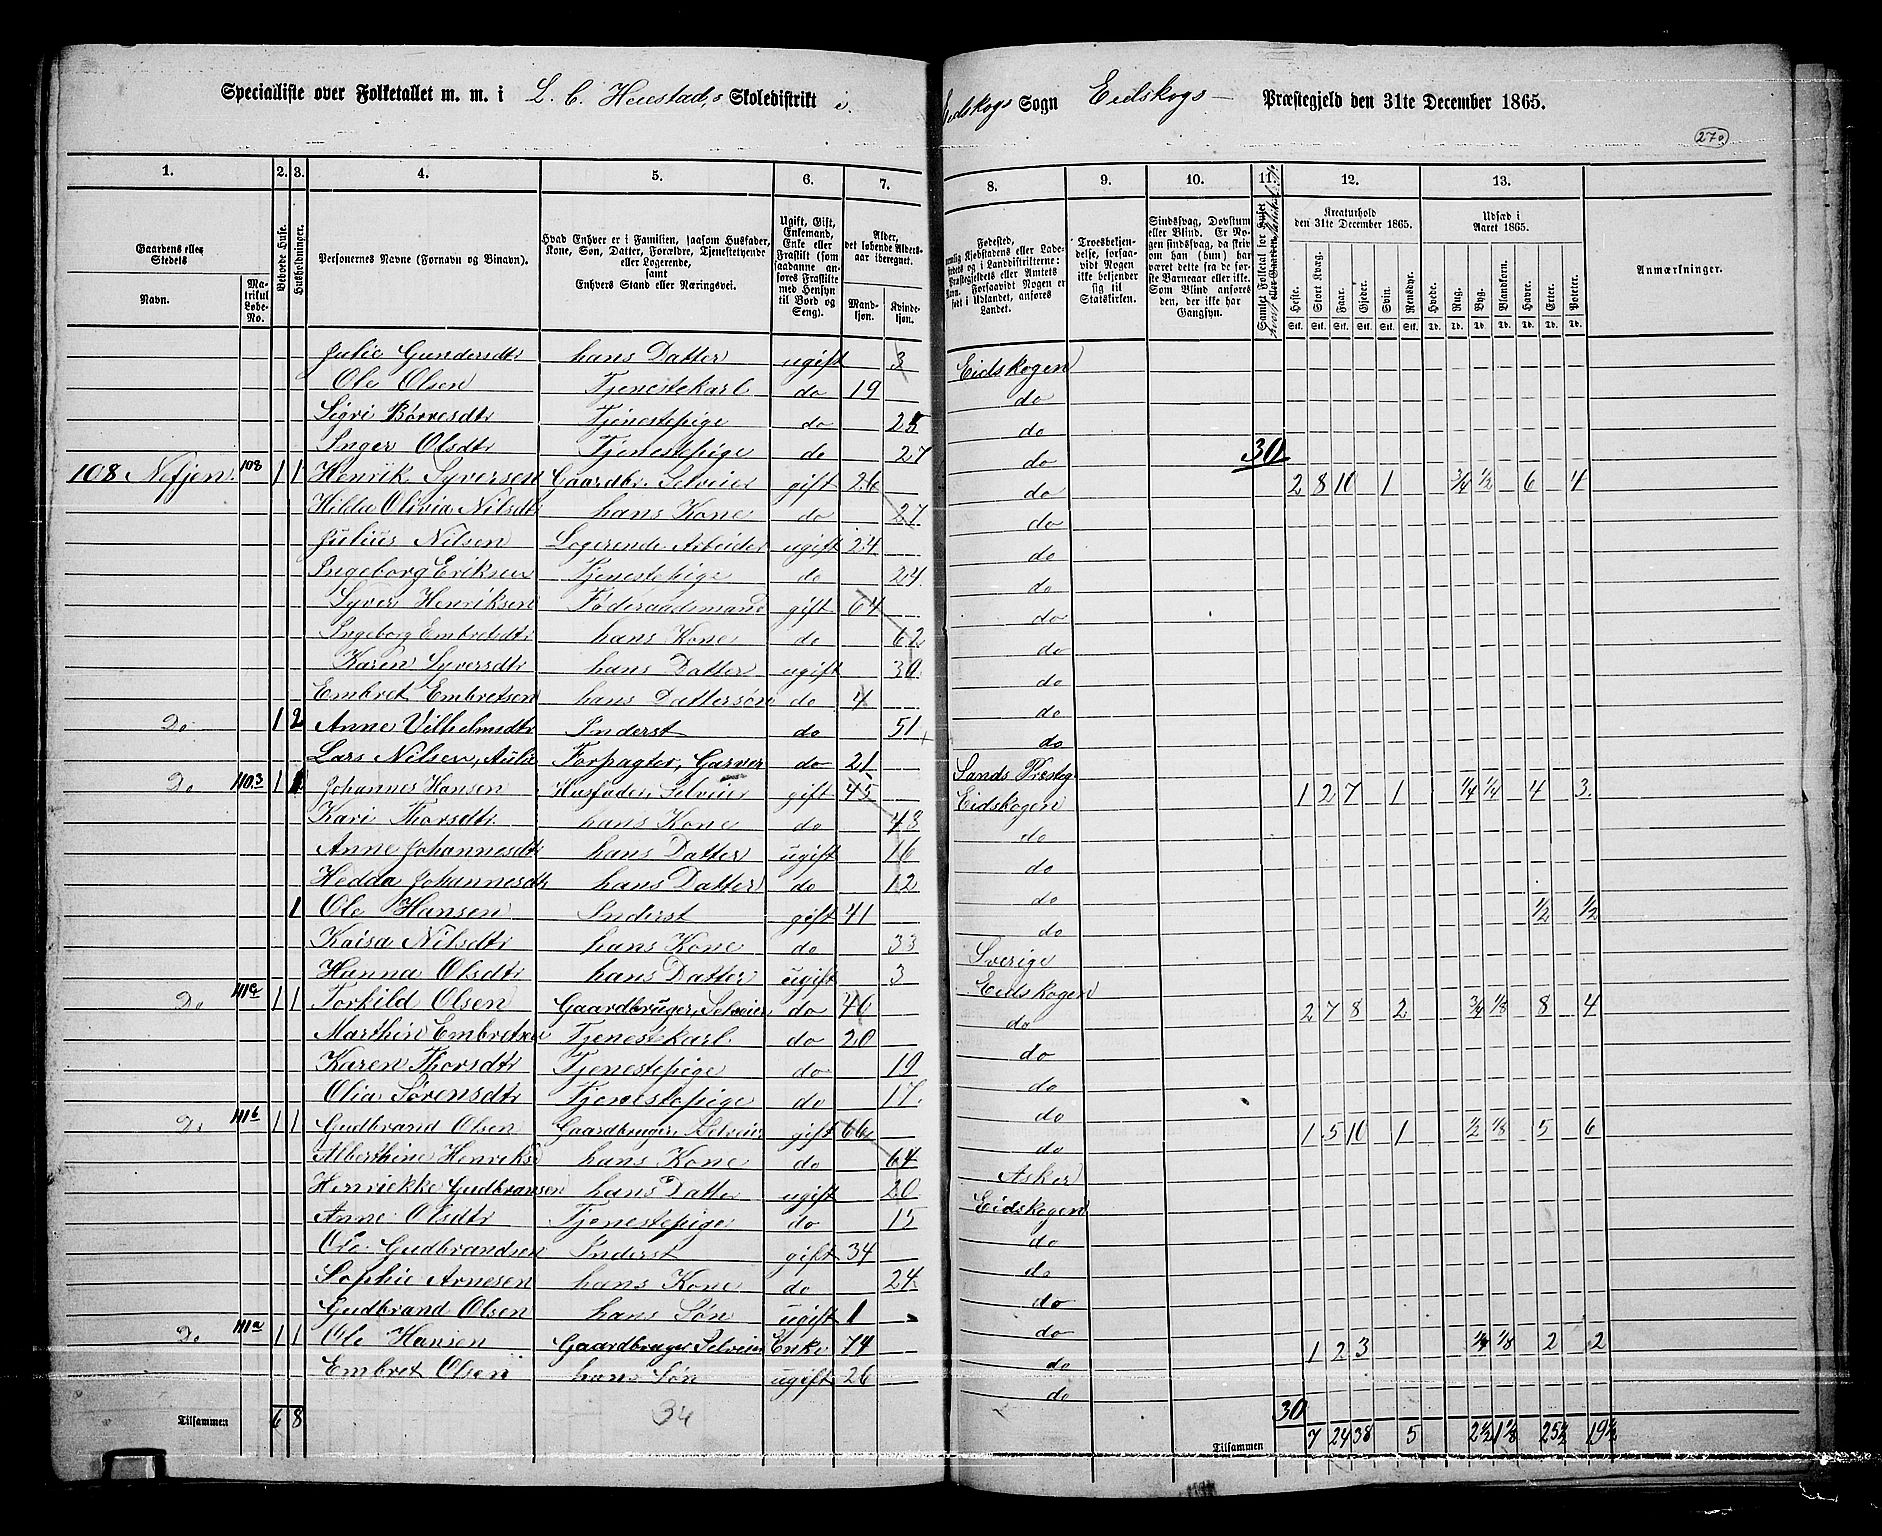 Specialliste over Folketallet m. m. i L. C. Heiestad,s Skoledistrikt i. Eidskogs Sogn Eidskogs Præstegjeld den 31te December 1865.
270
1. 2. 3. 4. 5. 6. 7. 8. 9. 10. 11. 12. 13.
Gaardens eller Stedets Navn. Matrikul Løbe-No. Beboede Huse. Husholdninger. Personernes Navne (Fornavn og Binavn). Hvad Enhver er i Familien, saasom Husfader, Kone, Søn, Datter, Forældre, Tjenestetyende eller Logerende, samt Enhvers Stand eller Næringsvei. Ugift, Gift, Enkemand, Enke eller Fraskilt (som saadanne anføres Fraskilte med Hensyn til Bord og Seng). Alder, det løbende Aldersaar iberegnet. Mandkjøn. Kvindekjøn.
Troesbekjendelse, forsaavidt Nogen ikke bekjender sig til Statskirken. Sindssvag, Døvstum eller Blind. Er Nogen sindssvag, da skriv om han (hun) har været dette fra de første Barneaar eller ikke. Som Blind anføres de, der ikke har Gangsyn. Kreaturhold den 31te December 1865. Heste. Stort Kvæg. Faar. Gjeder. Svin. Rensdyr. Udsæd i Aaret 1865. Hvede. Rug. Byg. Blandkorn. Havre. Erter. Poteter. Anmærkninger.
Julie Gundersdtr hans Datter ugift 3 Eidskogen
Ole Olsen Tjenestekarl do 19 do
Sigri Børresdtr Tjenestepige do 25 do
Inger Olsdtr Tjenestepige do 27 do 30
108 Nefjen. 108 1 1 Henrik Syversen Gaardbr. Selveier gift 26 do 2 8 10 1 3/4 1/2 6 4
Hilda Olivia Nilsdtr hans Kone do 27 do
Julius Nilsen Logerende Arbeider ugift 24 do
Ingeborg Eriksen Tjenestepige do 24 do
Syver Henriksen Føderaadsmand gift 64 do
Ingeborg Embretsdtr hans Kone do 62 do
Karen Syversdtr hans Datter ugift 30 do
Embret Embretsen hans Dattersøn do 4 do
Do 1 2 Anne Vilhelmsdtr Inderst do 51 do
Lars Nilsen, Aulie Forpagter, Garver do 21 Sands Præsteg
Do 110.3 1 1 Johannes Hansen Husfader, Selveier gift 45 Eidskogen 1 2 7 1 1/4 1/4 4 3
Kari Thorsdtr. hans Kone do 43 do
Anne Johannesdtr hans Datter ugift 16 do
Hedda Johannesdtr hans Datter do 12 do
1 Ole Hansen Inderst gift 41 do 1/2 1/2
Kaisa Nilsdtr hans Kone do 33 Sverige
Hanna Olsdtr hans Datter ugift 3 Eidskogen
Do 111a 1 1 Torkild Olsen Gaardbruger, Selveier do 40 do 2 7 8 2 3/4 1/8 8 4
Marthin Embretsen Tjenestekarl do 20 do
Karen Thorsdtr Tjenestepige do 19 do
Olia Sørensdtr Tjenestepige do 17 do
Do 111b 1 1 Gudbrand Olsen Gaardbruger, Selveier gift 66 do 1 5 10 1 1/2 1/8 5 6
Alberthine Henriks hans Kone do 64 Asker
Henriekke Gudbransen hans Datter ugift 20 Eidskogen
Anne Olsdtr Tjenestepige do 15 do
Ole Gudbrandsen Inderst gift 34 do
Sophie Arnesen hans Kone do 24 do
Gudbrand Olsen hans Søn ugift 1 do
Do 111a 1 1 Ole Hansen Gaardbruger Selveier Enke 74 do 1 2 3 1/4 1/8 2 2
Embret Olsen hans Søn ugift 26 do
Tilsammen 6 8 34 30 Tilsammen 7 24 38 5 2 1/2 1 1/8 25 1/2 19 1/2